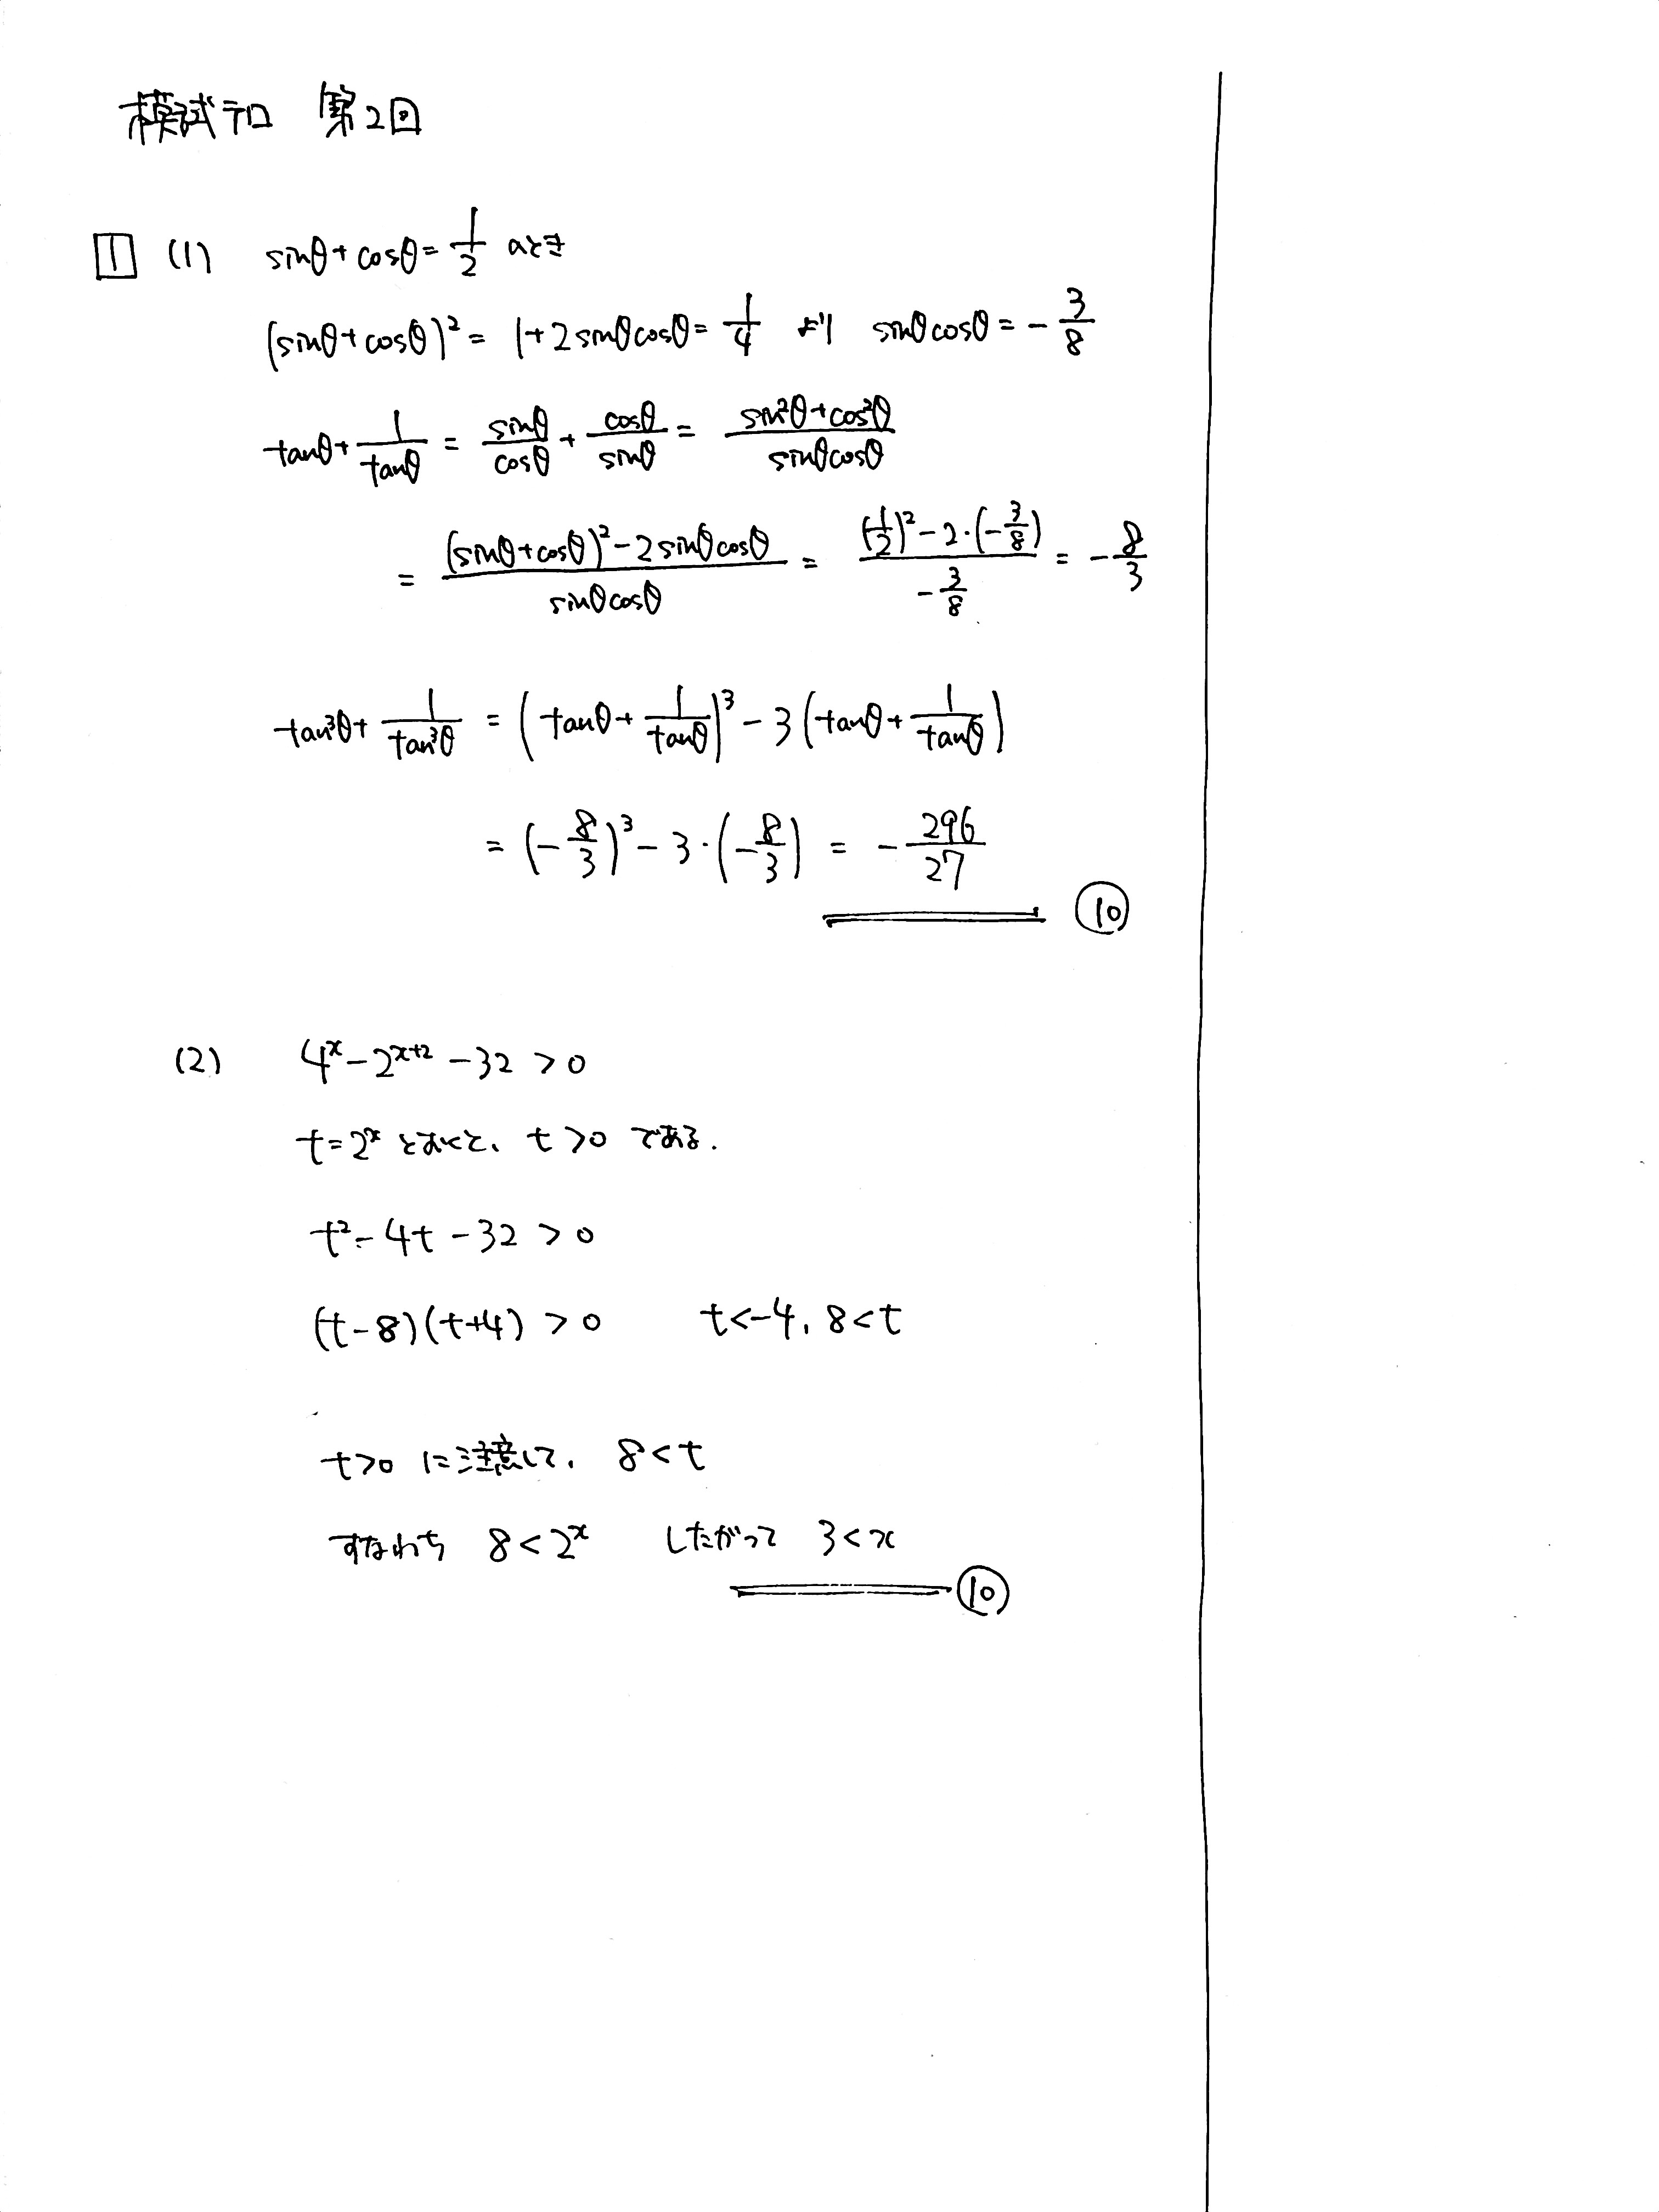 模試テロ 第2回
1 (1) sinθ+cosθ=1/2 のとき
(sinθ+cosθ)²= 1+2sinθcosθ=1/4 より sinθcosθ=-3/8
tanθ+1/tanθ = sinθ/cosθ + cosθ/sinθ = (sin²θ+cos²θ)/(sinθcosθ)
= ((sinθ+cosθ)²-2sinθcosθ)/(sinθcosθ) = ((1/2)²-2·(-3/8))/(-3/8) = -8/3
tan³θ+1/tan³θ = (tanθ+1/tanθ)³-3(tanθ+1/tanθ)
= (-8/3)³-3·(-8/3) = -296/27
⑩
(2) 4ˣ-2ˣ⁺²-32>0
t=2ˣ とおくと、t>0 である.
t²-4t-32>0
(t-8)(t+4)>0 t<-4, 8<t
t>0 に注意して, 8<t
すなわち 8<2ˣ したがって 3<x
⑩